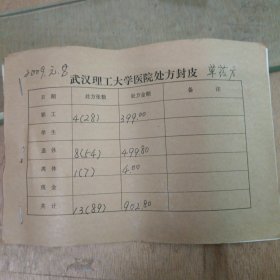 2009.元.8
武汉理工大学医院处方封皮
日期 处方张数 处方金额 备注
职工 4(28) 399.00
学生
退休 8(54) 499.80
离休 1(7) 4.00
现金
共计 13(89) 902.80